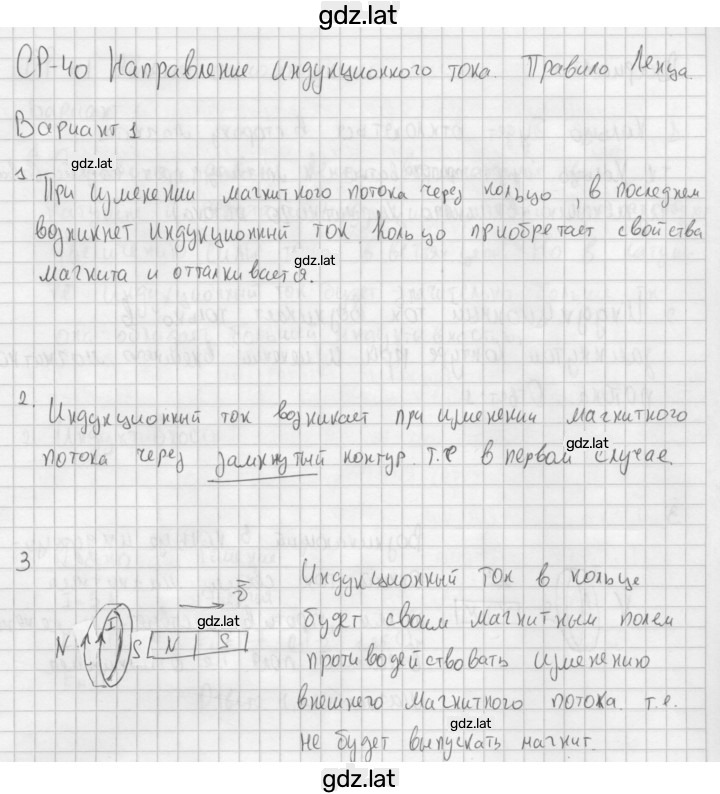 gdz.lat
СР-40 Направление индукционного тока. Правило Ленца.
Вариант 1
1 При изменении магнитного потока через кольцо, в последнем
возникнет индукционный ток. Кольцо приобретает свойства
gdz.lat
магнита и отталкивается.
2. Индукционный ток возникает при изменении магнитного
gdz.lat
потока через замкнутый контур т.е в первом случае.
3
Индукционный ток в кольце
будет своим магнитным полем
противодействовать изменению
внешнего магнитного потока. т.е.
не будет выпускать магнит.
v
gdz.lat
N I S N S
gdz.lat
gdz.lat